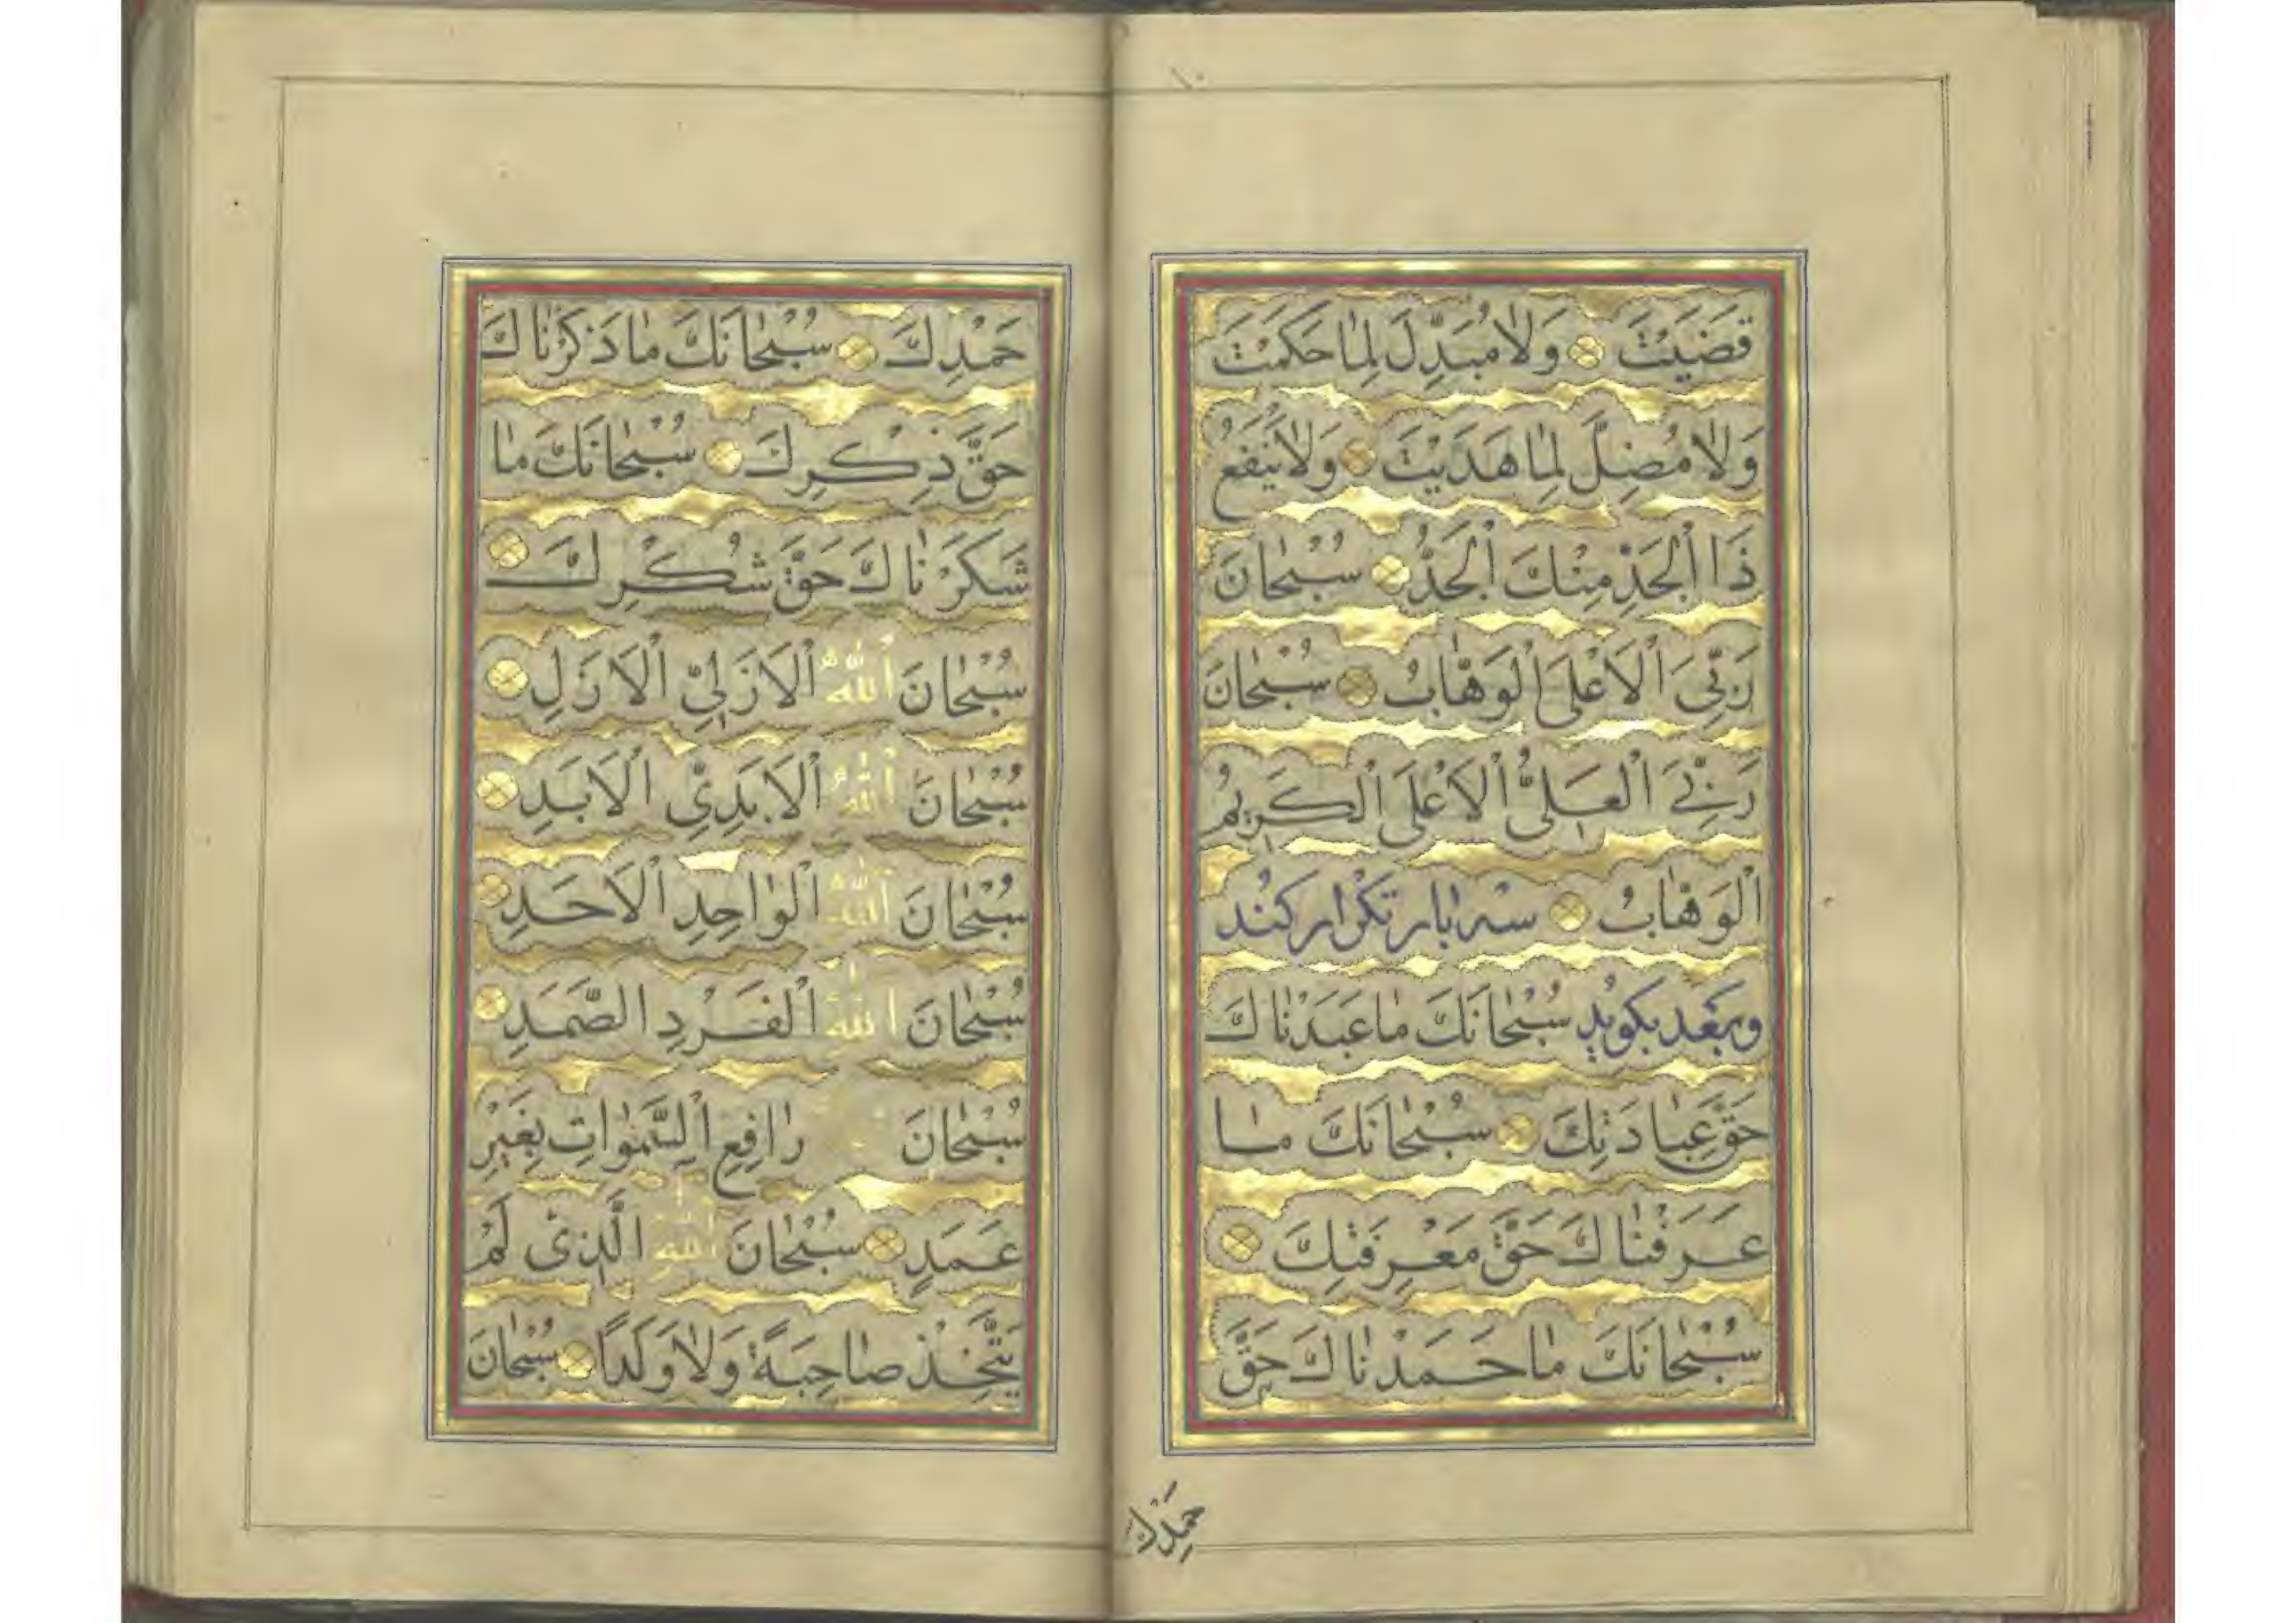 ١٠
قَضَيْتَ وَلَا مُبَدِّلَ لِمَا حَكَمْتَ
وَلَا مُضِلَّ لِمَا هَدَيْتَ وَلَا يَنْفَعُ
ذَا الْجَدِّ مِنْكَ الْجَدُّ سُبْحَانَ
رَبِّيَ الْاَعْلَى الْوَهَّابُ سُبْحَانَ
رَبِّيَ الْعَلِىُّ الْاَعْلَى الْكَرِيمُ
الْوَهَّابُ سه بار تکرار کنند
وبعد بکوید سُبْحَانَكَ مَا عَبَدْنَاكَ
حَقَّ عِبَادَتِكَ سُبْحَانَكَ مَا
عَرَفْنَاكَ حَقَّ مَعْرِفَتِكَ
سُبْحَانَكَ مَا حَمَدْنَاكَ حَقَّ
حَمْدِكَ
حَمْدِكَ سُبْحَانَكَ مَا ذَكَرْنَاكَ
حَقَّ ذِكْرِكَ سُبْحَانَكَ مَا
شَكَرْنَاكَ حَقَّ شُكْرِكَ
سُبْحَانَ اللهِ الْاَزَلِيِّ الْاَزَلِ
سُبْحَانَ اللهِ الْاَبَدِيِّ الْاَبَدِ
سُبْحَانَ اللهِ الْوَاحِدِ الْاَحَدِ
سُبْحَانَ اللهِ الْفَرْدِ الصَّمَدِ
سُبْحَانَ رَافِعِ السَّمٰوَاتِ بِغَيْرِ
عَمَدٍ سُبْحَانَ اللهِ الَّذِى لَمْ
يَتَّخِذْ صَاحِبَةً وَلَا وَلَدًا سُبْحَانَ